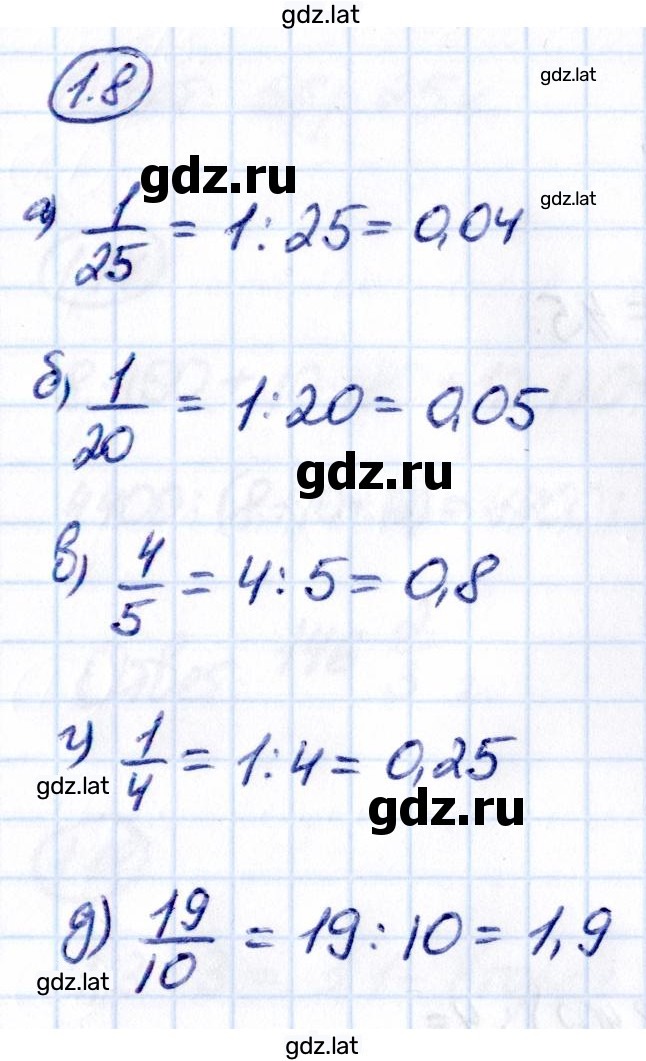 gdz.lat
1.8
gdz.lat
gdz.ru
gdz.lat
а) 1/25 = 1 : 25 = 0,04
б) 1/20 = 1 : 20 = 0,05
gdz.ru
в) 4/5 = 4 : 5 = 0,8
г) 1/4 = 1 : 4 = 0,25
gdz.lat
gdz.ru
д) 19/10 = 19 : 10 = 1,9
gdz.lat
gdz.lat